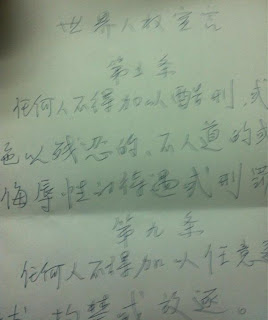 世界人权宣言
第五条
任何人不得加以酷刑，或
施以残忍的、不人道的或
侮辱性的待遇或刑罚
第九条
任何人不得加以任意
拘禁或放逐。